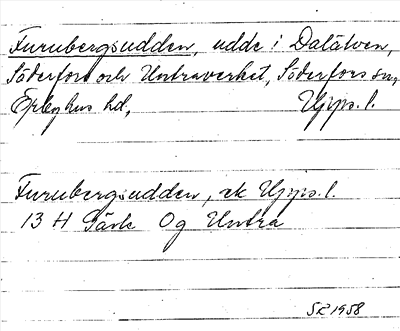 Furubergsudden, udde i Dalälven,
Söderfors och Untraverket, Söderfors sn,
Örbyhus hd, Upps. l.
Furubergsudden, ek Upps. l.
13 H Gävle Og Untra
SÆ 1958